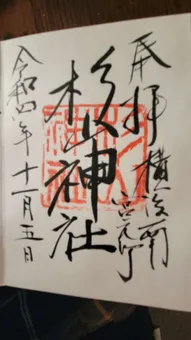 奉拝 横浜南
宮元町
杉山神社
令和四年十一月五日